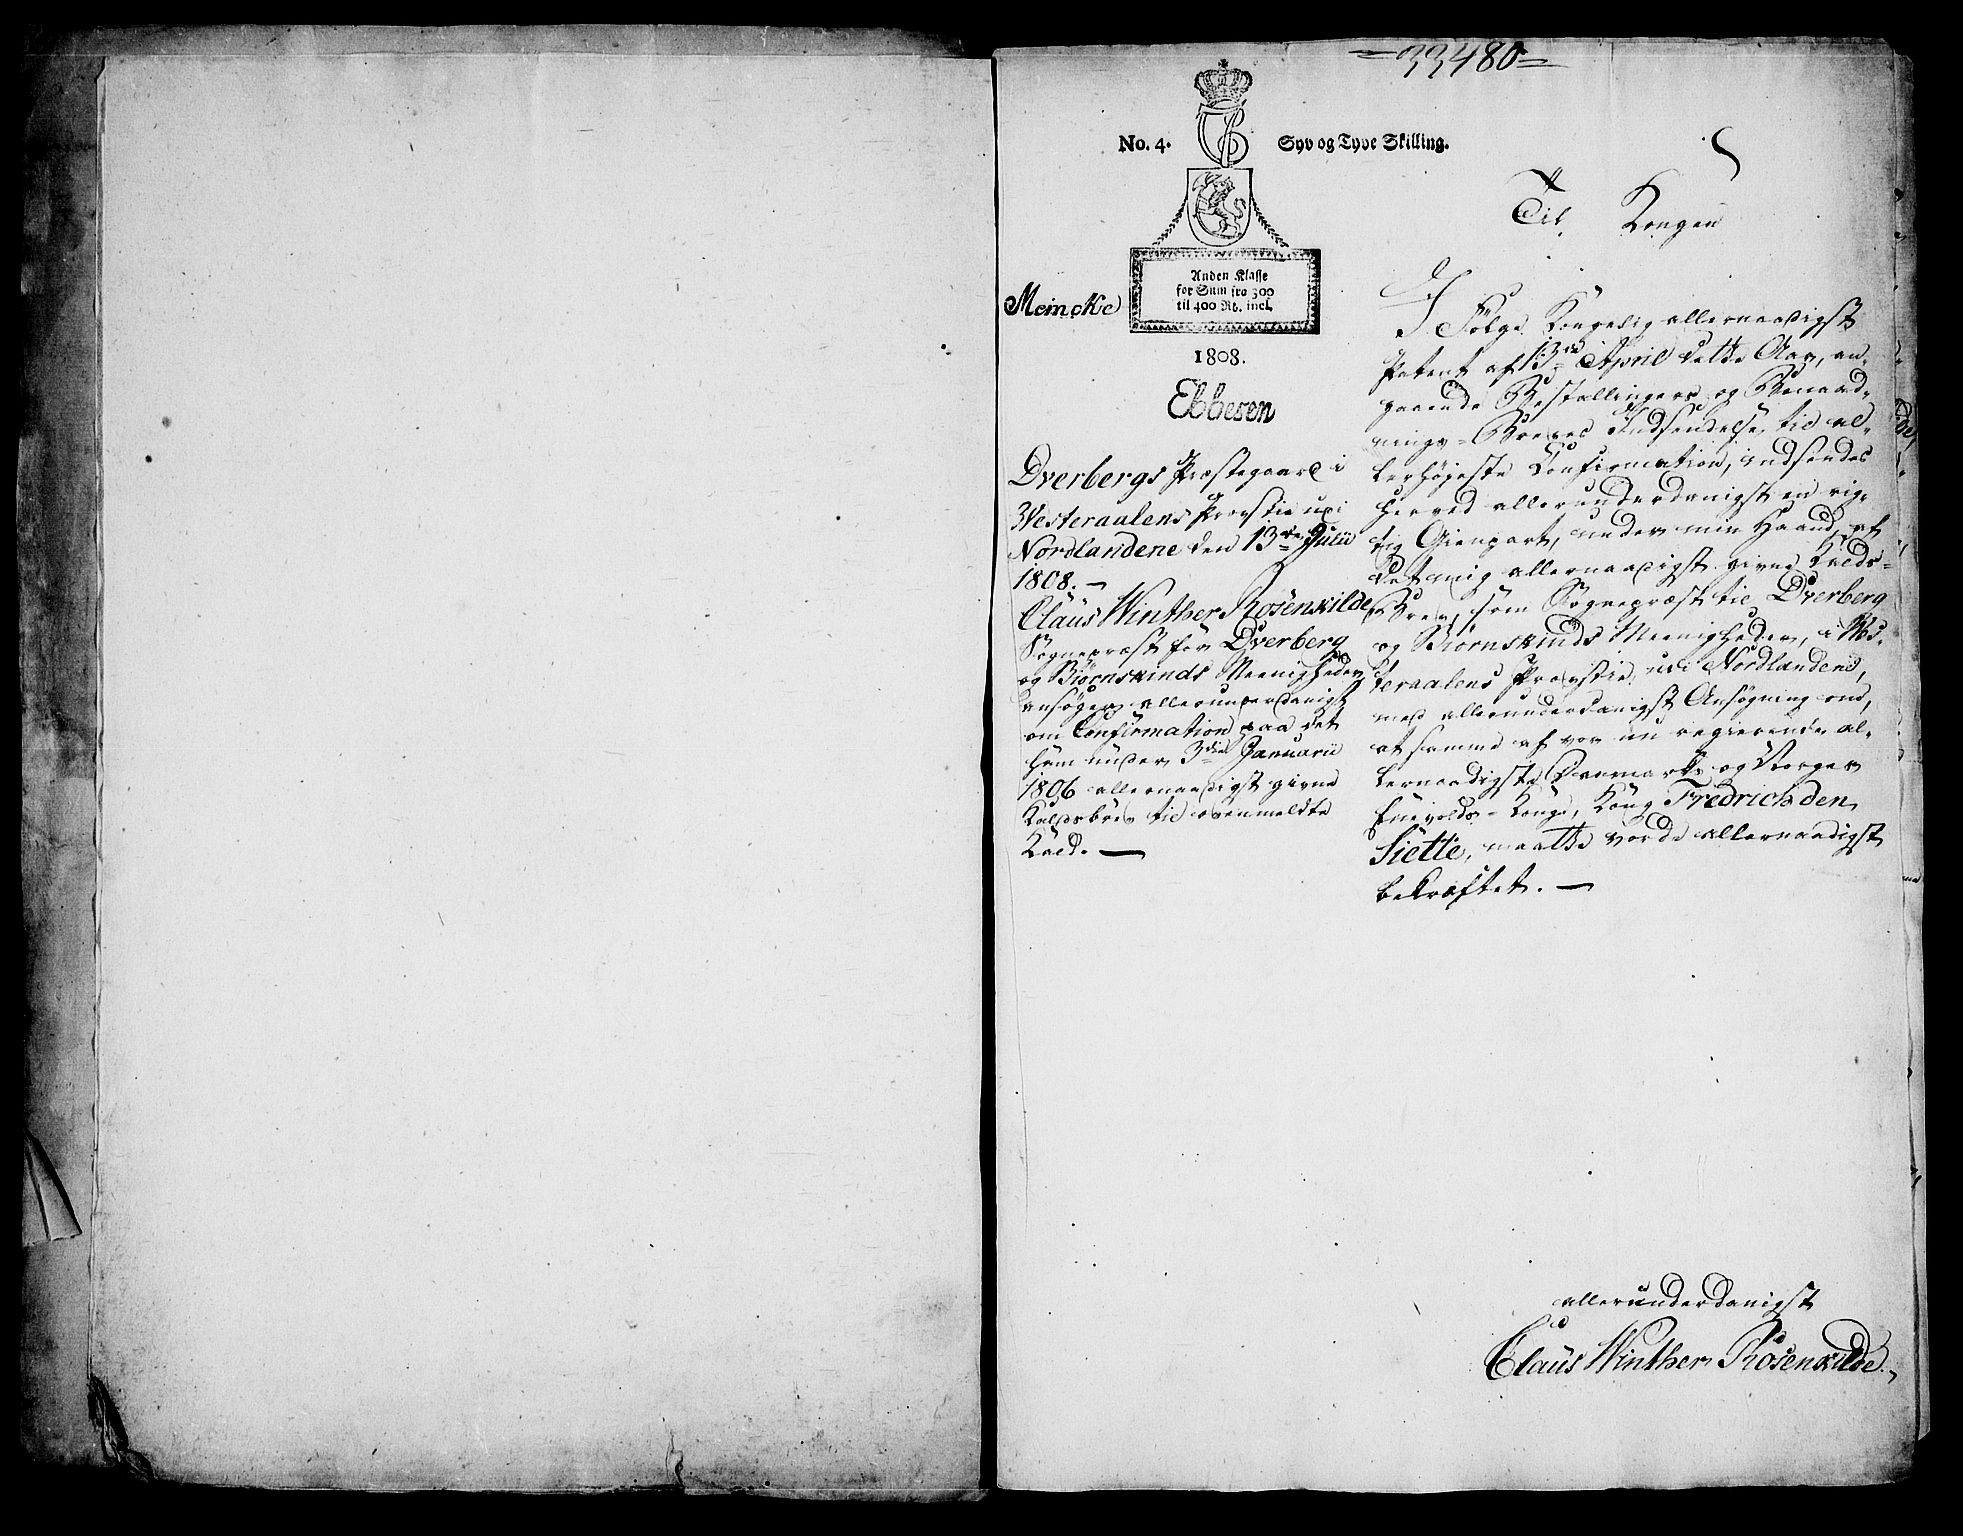 =33480=
No. 4. Syv og Tyve Skilling.
Anden Klasse
for Sum fra 300
til 400 Rd. incl.
Meincke
1808.
Ebbesen
Dverbergs Præstegaard i
Westeraalens Provstie udi
Nordlandene den 13de Julii
1808. —
Claus Winther Rosenkilde,
Sognepræst for Dverberg
og Biørnskinds Meenigheder,
ansøger allerunderdanigst
om Confirmation paa det
ham under 3die Januarii
1806 allernaadigst givne
Kaldsbrev til ovenmeldte
Kald. —
Til Kongen
I Følge Kongelig allernaadigst
Patent af 13de April dette Aar, an-
gaaende Bestallingers og Benaad-
nings-Breves Indsendelse til al-
lerhøjeste Confirmation, indsendes
herved allerunderdanigst en rig-
tig Gienpart, under min Haand, af
det mig allernaadigst givne Kalds-
Brev, som Sognepræst til Dverberg
og Biørnskinds Meenigheder, i Wes-
teraalens Provstie udi Nordlandene,
med allerunderdanigst Ansøgning om,
at samme af vor nu regierende al-
lernaadigste Danmarks og Norges
Enevolds-Konge, Kong Fredrich den
Siette, maatte vorde allernaadigst
bekræftet. —
allerunderdanigst
Claus Winther Rosenkilde.